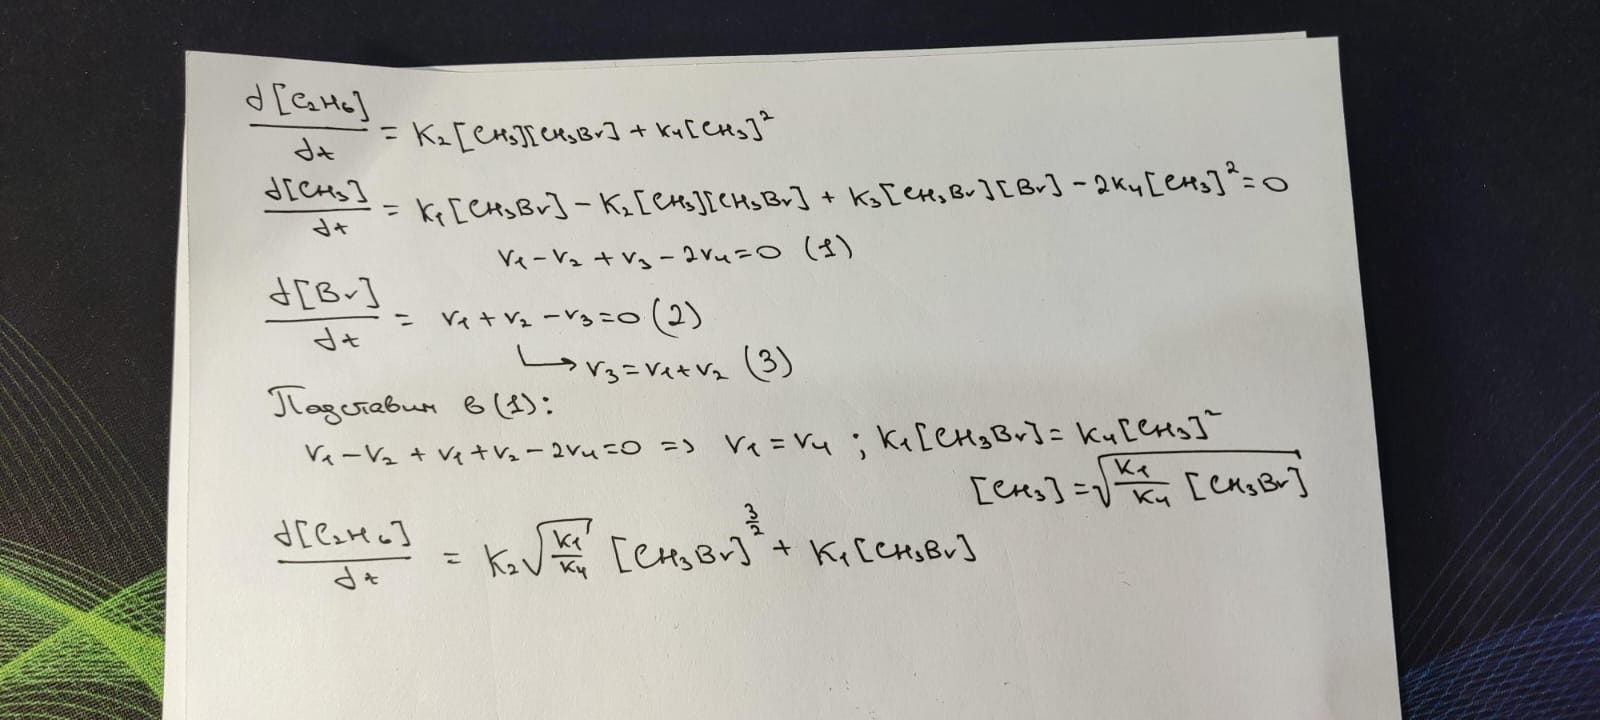 d[C₂H₆]/dt = K₂[CH₃][CH₃Br] + K₄[CH₃]²
d[CH₃]/dt = K₁[CH₃Br] − K₂[CH₃][CH₃Br] + K₃[CH₃Br][Br] − 2K₄[CH₃]² = 0
r₁ − r₂ + r₃ − 2r₄ = 0 (1)
d[Br]/dt = r₁ + r₂ − r₃ = 0 (2)
↳ r₃ = r₁ + r₂ (3)
Подставим в (1):
r₁ − r₂ + r₁ + r₂ − 2r₄ = 0 => r₁ = r₄ ; K₁[CH₃Br] = K₄[CH₃]²
[CH₃] = √(K₁/K₄ [CH₃Br])
d[C₂H₆]/dt = K₂√(K₁/K₄) [CH₃Br]^(3/2) + K₁[CH₃Br]